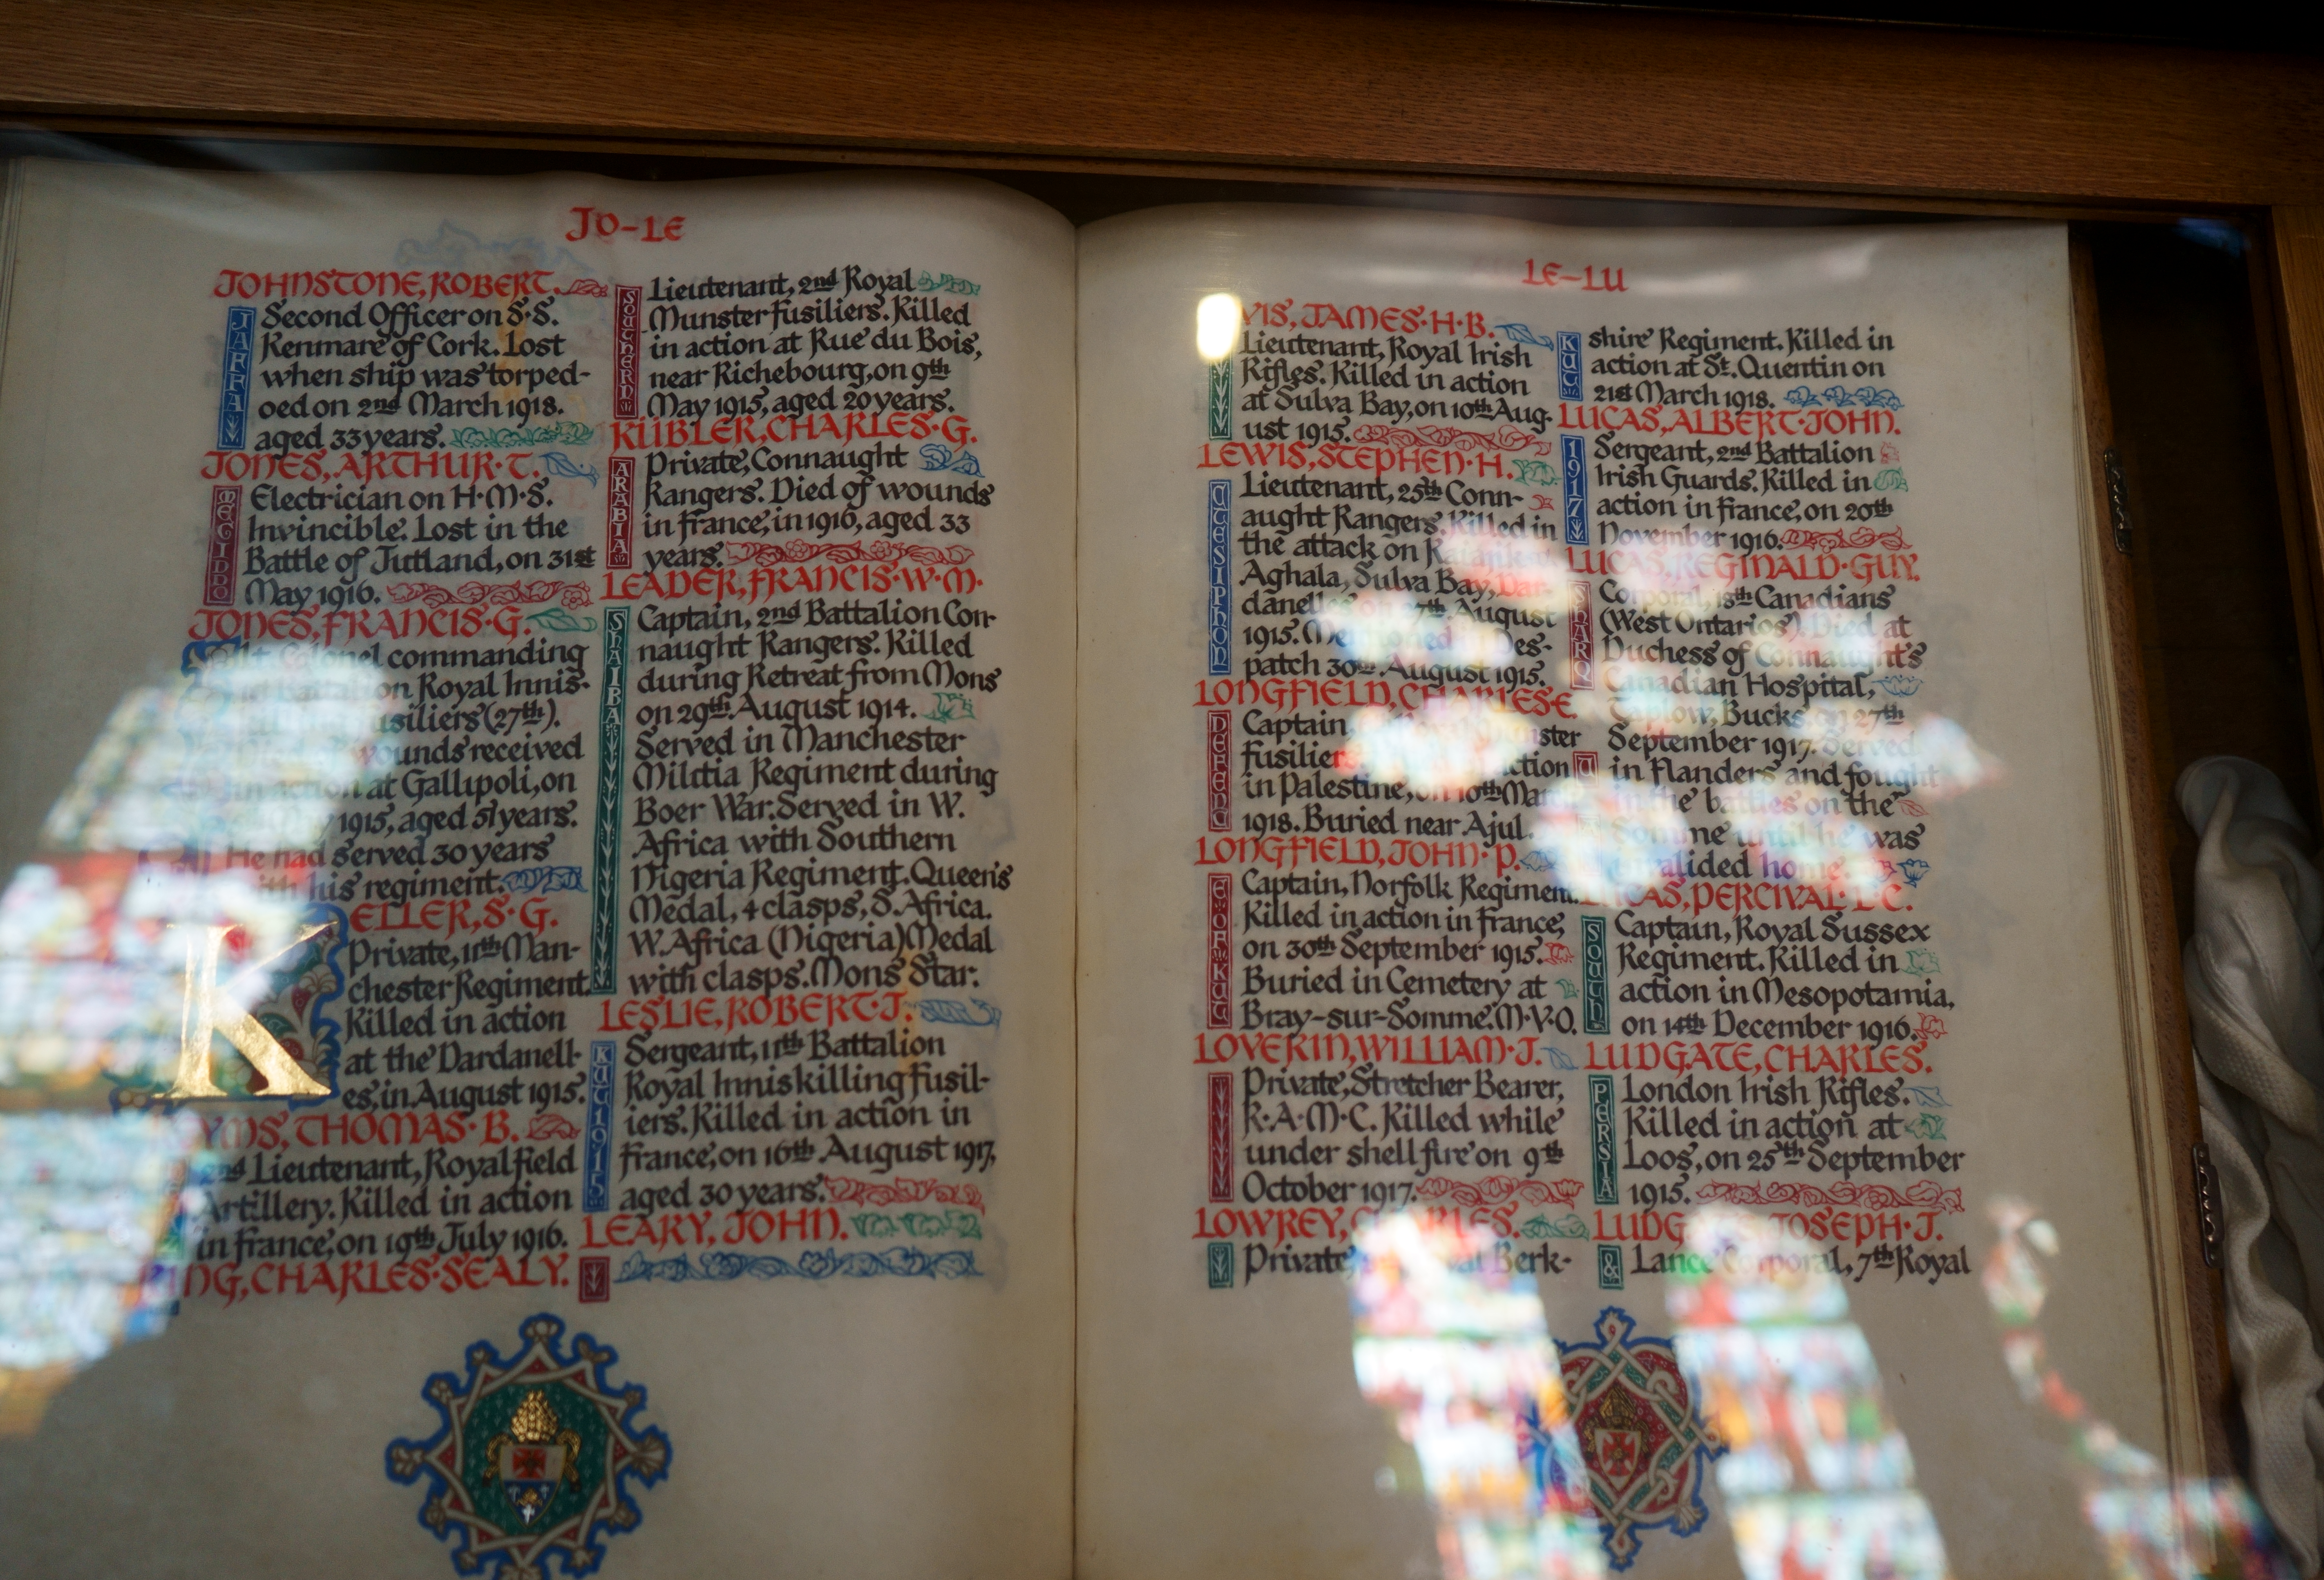 JO-LE
JOHNSTONE, ROBERT.
JAFFA
Second Officer on S·S.
Kenmare of Cork. Lost
when ship was torped-
oed on 2nd March 1918.
aged 33 years.
JONES, ARTHUR·T.
MEGIDDO
Electrician on H·M·S.
Invincible. Lost in the
Battle of Jutland, on 31st
May 1916.
JONES, FRANCIS·G.
Lt. Colonel commanding
Battalion Royal Innis-
usiliers (27th).
wounds received
in action at Gallipoli, on
1915, aged 51 years.
He had served 30 years
with his regiment.
KELLER, S·G.
Private, 11th Man-
chester Regiment.
Killed in action
at the Dardanell-
es, in August 1915.
YMS, THOMAS·B.
2nd Lieutenant, Royal Field
Artillery. Killed in action
in France, on 19th July 1916.
KING, CHARLES·SEALY.
SOUTHERN
Lieutenant, 2nd Royal
Munster Fusiliers. Killed
in action at Rue du Bois,
near Richebourg, on 9th
May 1915, aged 20 years.
KÜBLER, CHARLES·G.
ARABIA
Private, Connaught
Rangers. Died of wounds
in France, in 1916, aged 33
years.
LEADER, FRANCIS·W·M.
SHAIBA
Captain, 2nd Battalion Con-
naught Rangers. Killed
during Retreat from Mons
on 29th August 1914.
Served in Manchester
Militia Regiment during
Boer War. Served in W.
Africa with Southern
Nigeria Regiment. Queen's
Medal, 4 clasps, S. Africa.
W. Africa (Nigeria) Medal
with clasps. Mons Star.
LESLIE, ROBERT·J.
KUT 1915
Sergeant, 11th Battalion
Royal Inniskilling Fusil-
iers. Killed in action in
France, on 16th August 1917,
aged 30 years.
LEARY, JOHN.
LE-LU
VIS, JAMES·H·B.
Lieutenant, Royal Irish
Rifles. Killed in action
at Sulva Bay, on 10th Aug-
ust 1915.
LEWIS, STEPHEN·H.
CTESIPHON
Lieutenant, 25th Conn-
aught Rangers. Killed in
the attack on
Aghala, Sulva Bay, Dar-
danelles on 7th August
1915. Mentioned Des-
patch 30th August 1915.
LONGFIELD, CHARLES·E.
DEFENC
Captain, Munster
Fusiliers action
in Palestine, on 10th March
1918. Buried near Ajul.
LONGFIELD, JOHN·P.
E·OF·KUT
Captain, Norfolk Regiment.
Killed in action in France,
on 30th September 1915.
Buried in Cemetery at
Bray-sur-Somme. M·V·O.
LOVERIN, WILLIAM·J.
Private, Stretcher Bearer,
R·A·M·C. Killed while
under shell fire on 9th
October 1917.
LOWREY, CHARLES.
Private, Royal Berk-
KUT
shire Regiment. Killed in
action at St. Quentin on
21st March 1918.
LUCAS, ALBERT·JOHN.
1917
Sergeant, 2nd Battalion
Irish Guards. Killed in
action in France, on 20th
November 1916.
LUCAS, REGINALD·GUY.
SHARQ
Corporal, 18th Canadians
(West Ontarios). Died at
Duchess of Connaught's
Canadian Hospital,
Taplow, Bucks, on 27th
September 1917. Served
in Flanders and fought
in the battles on the
Somme until he was
invalided home.
LUCAS, PERCIVAL·D·C.
SOUTH
Captain, Royal Sussex
Regiment. Killed in
action in Mesopotamia,
on 14th December 1916.
LUDGATE, CHARLES.
PERSIA
London Irish Rifles.
Killed in action at
Loos, on 25th September
1915.
LUDGATE, JOSEPH·J.
&
Lance Corporal, 7th Royal